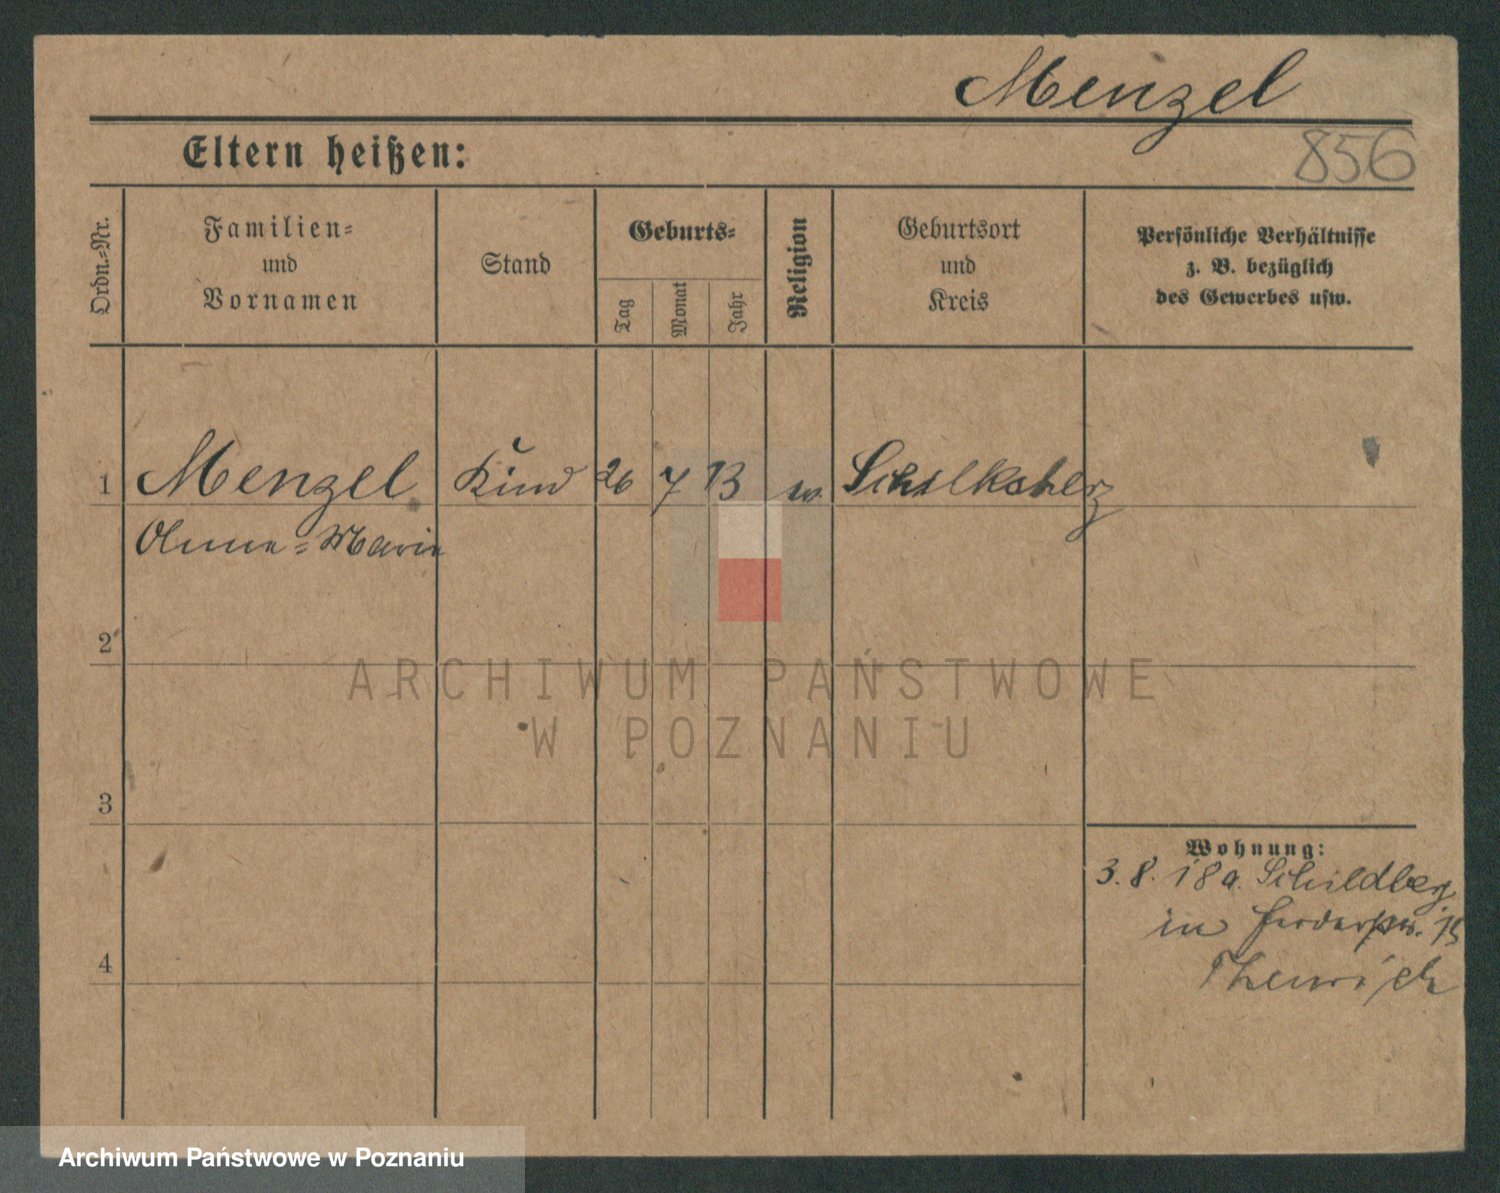 Menzel
856
Eltern heißen:
Ordn.=Nr.
Familien=
und
Vornamen
Stand
Geburts=
Tag
Monat
Jahr
Religion
Geburtsort
und
Kreis
Persönliche Verhältnisse
z. B. bezüglich
des Gewerbes usw.
1 Menzel Kind 26 7 13
Anna=Marie
2
3
4
Wohnung:
3. 8. 18 a. Schildberg
in 15
ARCHIWUM PAŃSTWOWE
W POZNANIU
Archiwum Państwowe w Poznaniu